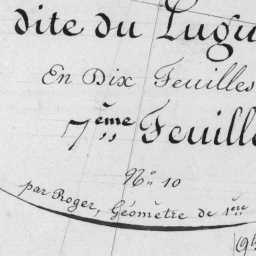 dite du Lugu
En Dix Feuilles
7ème Feuille
N° 10
par Roger, Géomètre de 1ère